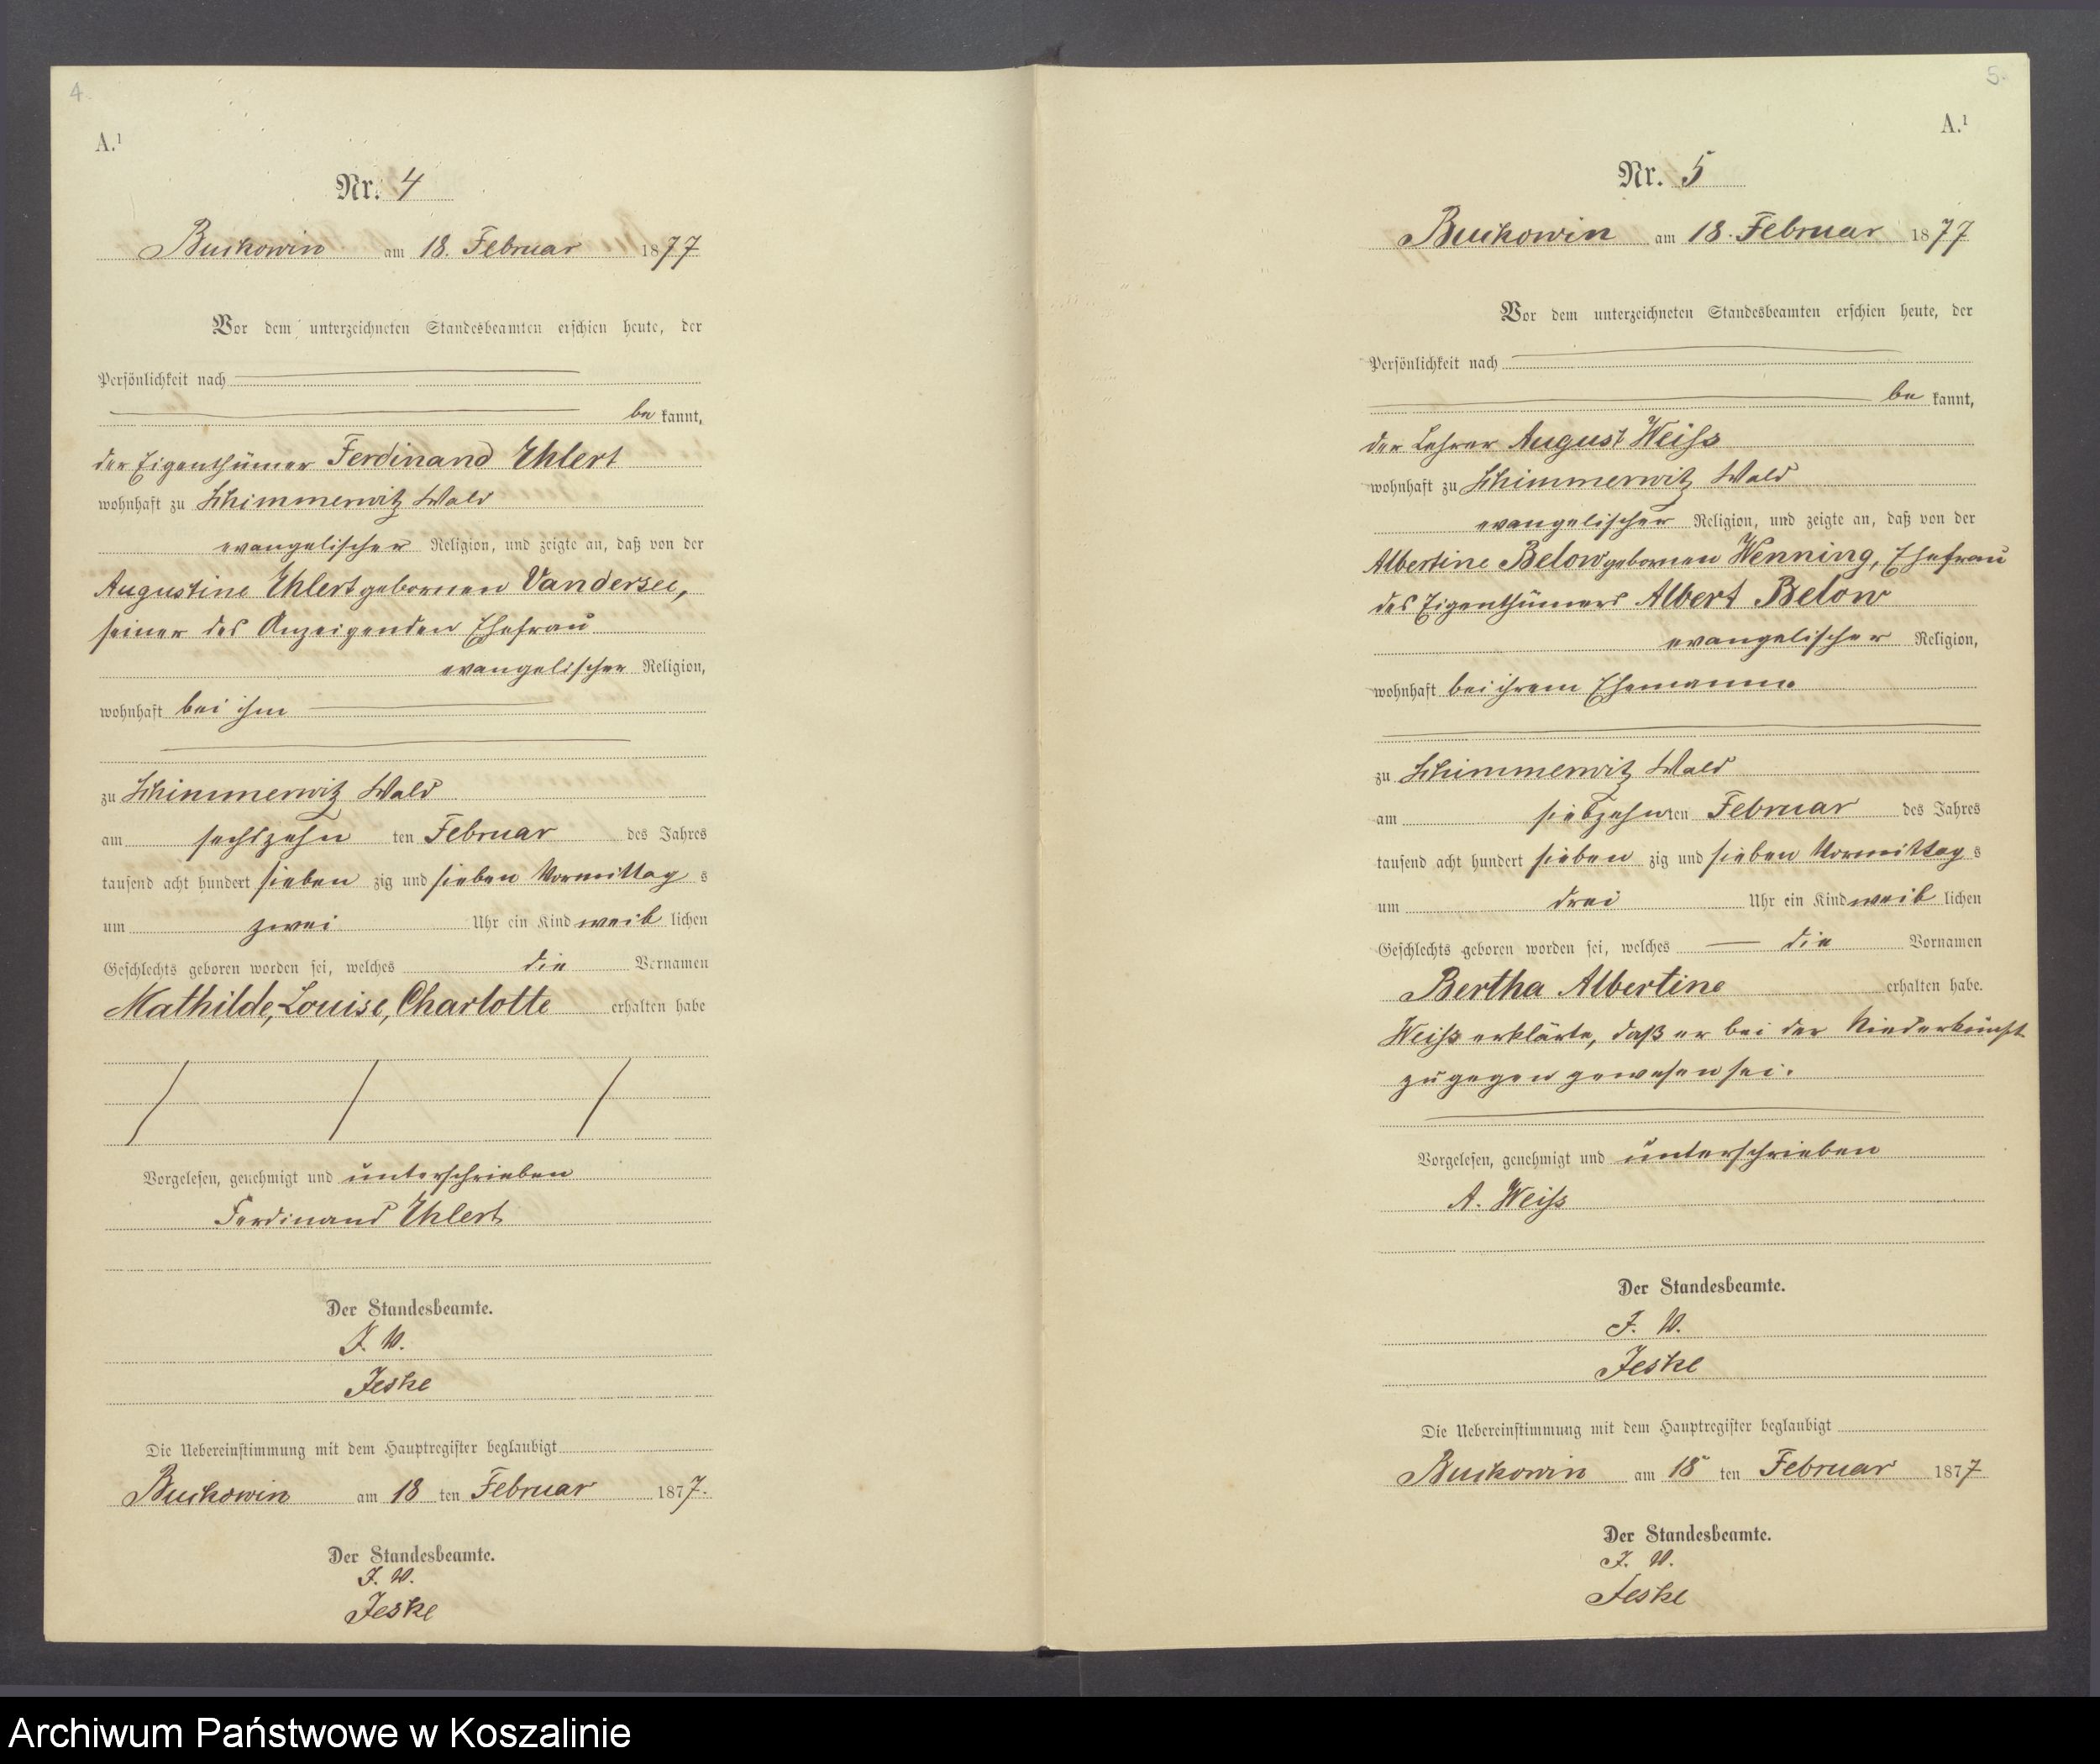 4.
A.¹
Nr. 4
Buckowin am 18. Februar 1877
Vor dem unterzeichneten Standesbeamten erschien heute, der
Persönlichkeit nach
be kannt,
der Eigenthümer Ferdinand Ehlert
wohnhaft zu Schimmerwitz Wald
evangelischer Religion, und zeigte an, daß von der
Augustine Ehlert gebornen Vandersee,
seiner des Anzeigenden Ehefrau
evangelischer Religion,
wohnhaft bei ihm
zu Schimmerwitz Wald
am sechszehn ten Februar des Jahres
tausend acht hundert sieben zig und sieben Vormittag s
um zwei Uhr ein Kind weib lichen
Geschlechts geboren worden sei, welches die Vornamen
Mathilde, Louise, Charlotte erhalten habe
Vorgelesen, genehmigt und unterschrieben
Ferdinand Ehlert
Der Standesbeamte.
J. V.
Jeske
Die Uebereinstimmung mit dem Hauptregister beglaubigt
Buckowin am 18 ten Februar 1877.
Der Standesbeamte.
J. V.
Jeske
5.
A.¹
Nr. 5
Buckowin am 18. Februar 1877
Vor dem unterzeichneten Standesbeamten erschien heute, der
Persönlichkeit nach
be kannt,
der Lehrer August Weiß
wohnhaft zu Schimmerwitz Wald
evangelischer Religion, und zeigte an, daß von der
Albertine Below gebornen Wenning, Ehefrau
des Eigenthümers Albert Below
evangelischer Religion,
wohnhaft bei ihrem Ehemanne
zu Schimmerwitz Wald
am siebzehn ten Februar des Jahres
tausend acht hundert sieben zig und sieben Vormittag s
um drei Uhr ein Kind weib lichen
Geschlechts geboren worden sei, welches — die Vornamen
Bertha Albertine erhalten habe.
Weiß erklärte, daß er bei der Niederkunft
zugegen gewesen sei.
Vorgelesen, genehmigt und unterschrieben
A. Weiß
Der Standesbeamte.
J. V.
Jeske
Die Uebereinstimmung mit dem Hauptregister beglaubigt
Buckowin am 18 ten Februar 1877
Der Standesbeamte.
J. V.
Jeske
Archiwum Państwowe w Koszalinie